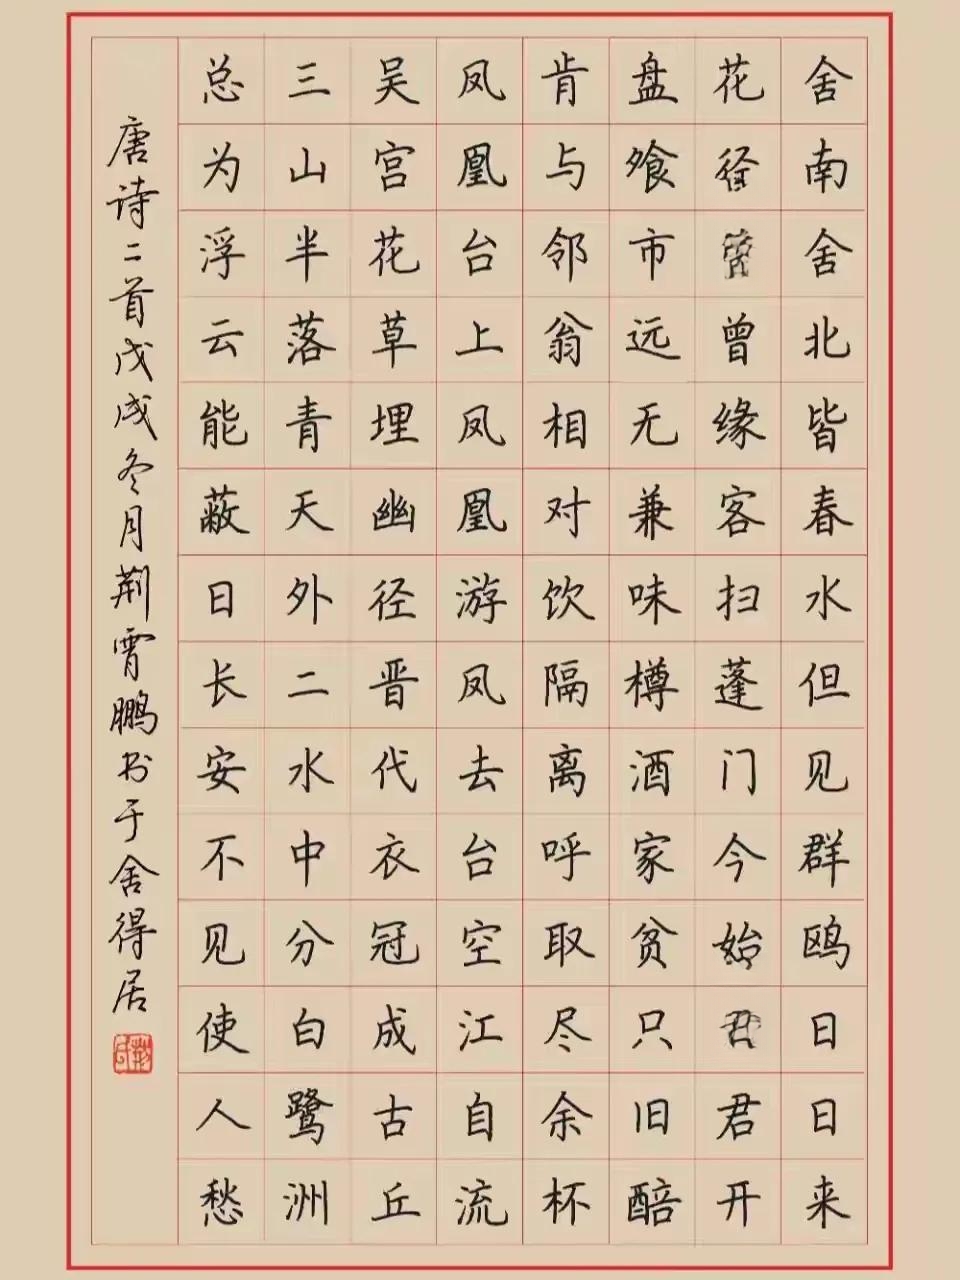 舍南舍北皆春水但见群鸥日日来
花径曾缘客扫蓬门今始君开
盘飱市远无兼味樽酒家贫只旧醅
肯与邻翁相对饮隔离呼取尽余杯
凤凰台上凤凰游凤去台空江自流
吴宫花草埋幽径晋代衣冠成古丘
三山半落青天外二水中分白鹭洲
总为浮云能蔽日长安不见使人愁
唐诗二首戊戌冬月荆霄鹏书于舍得居